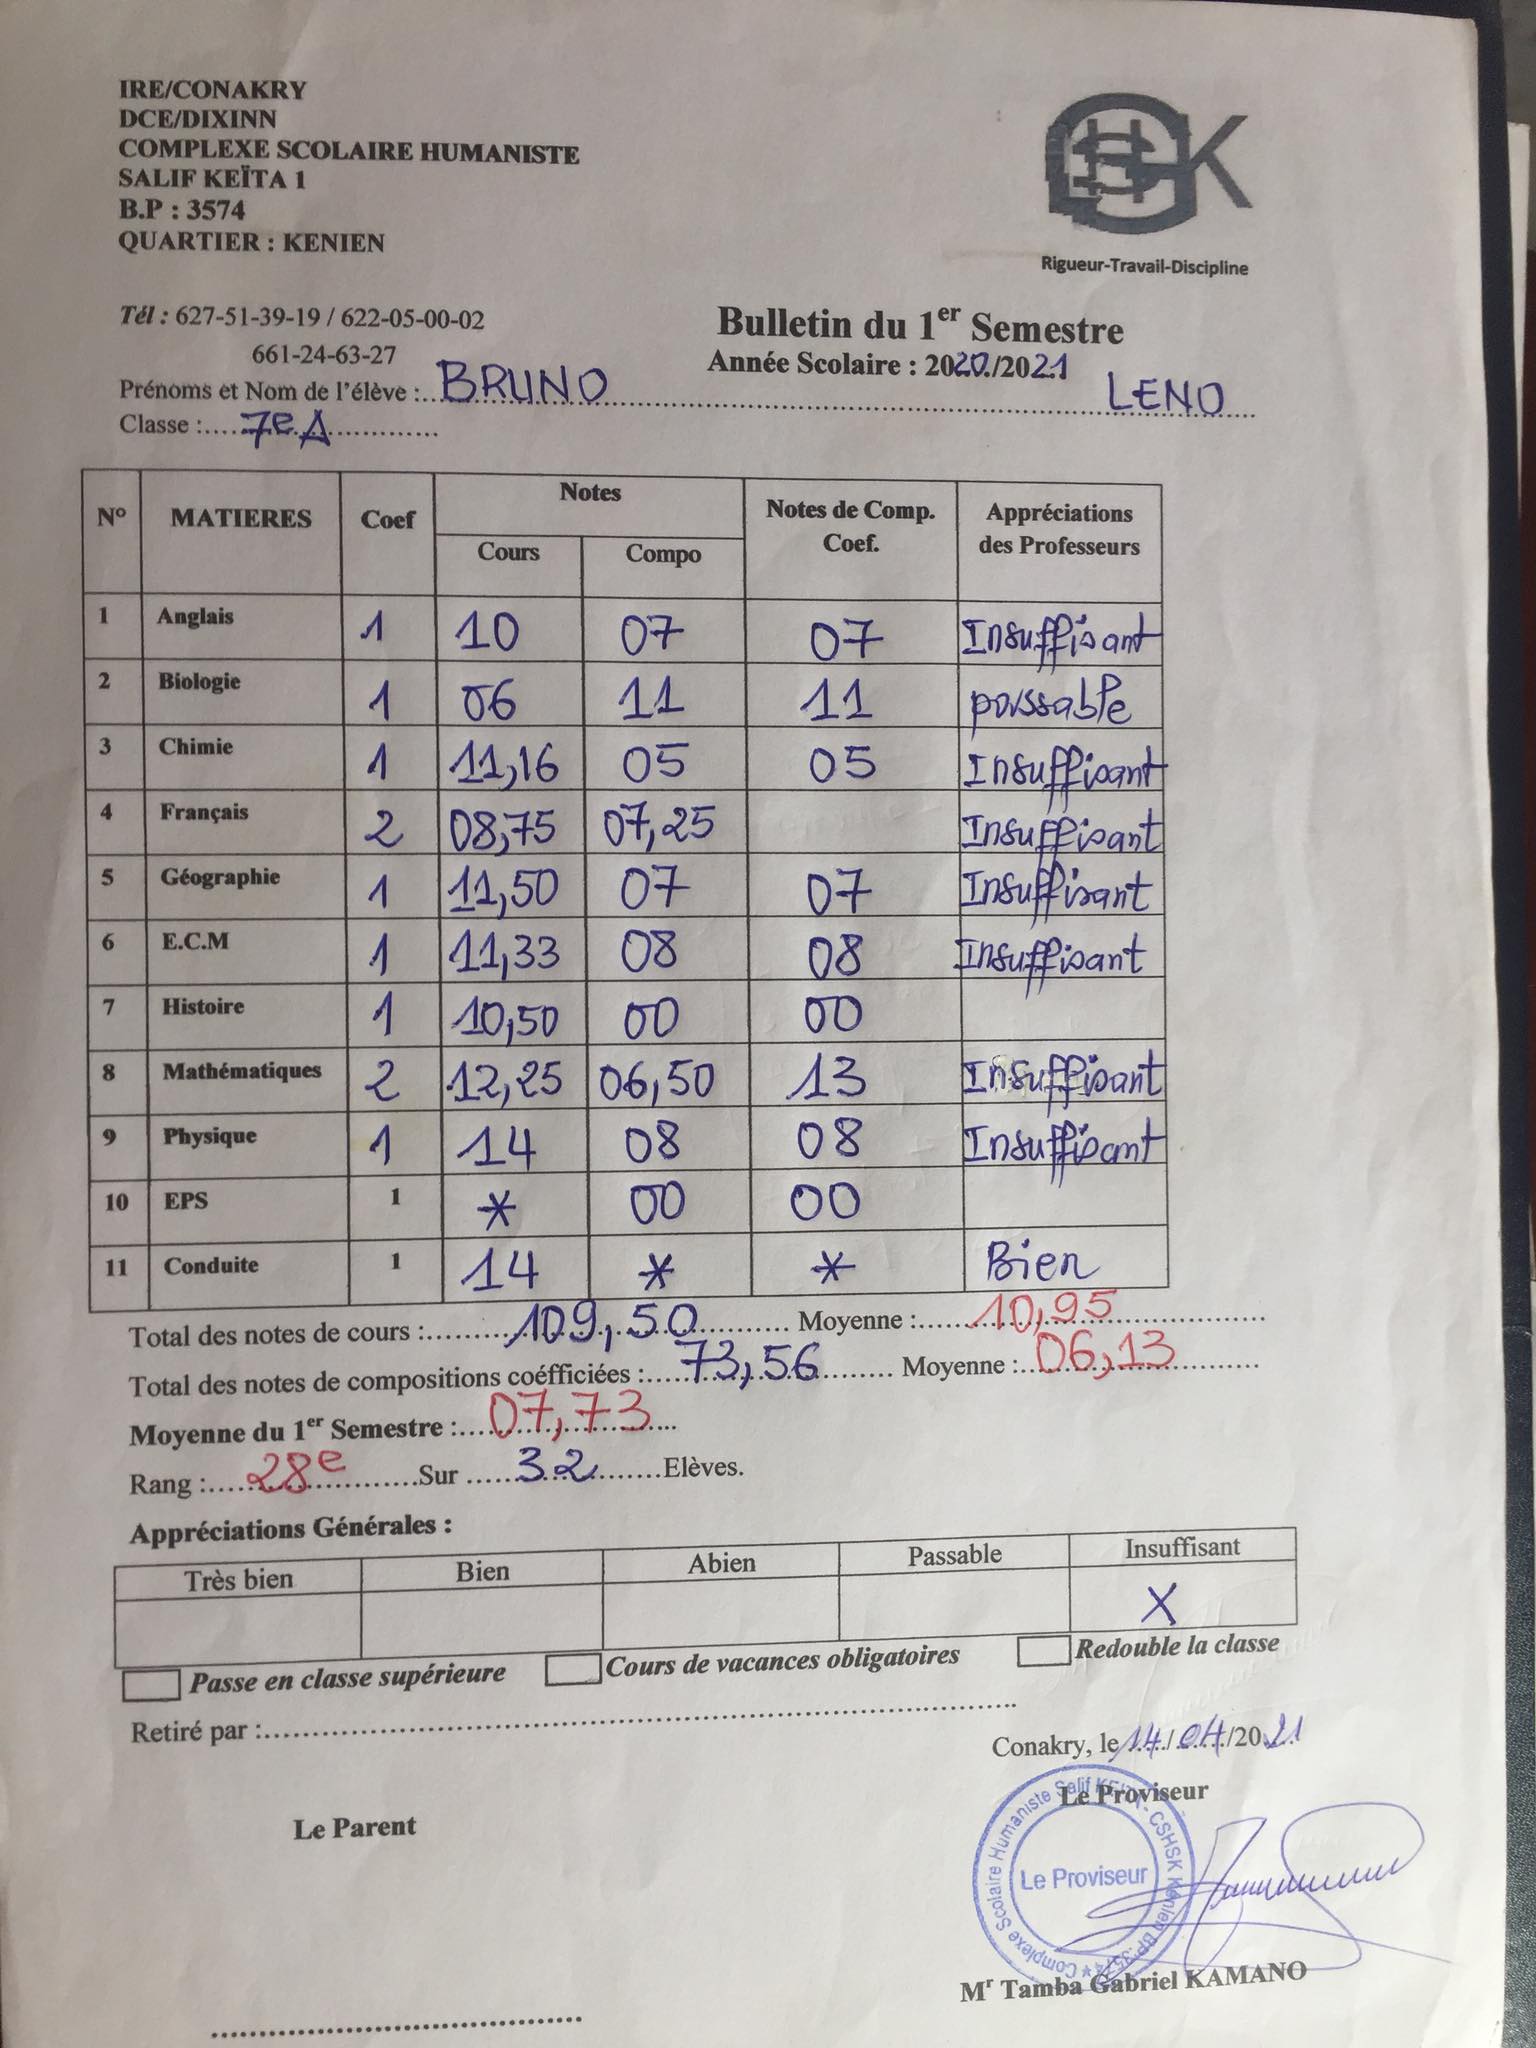 IRE/CONAKRY
DCE/DIXINN
COMPLEXE SCOLAIRE HUMANISTE
SALIF KEÏTA 1
B.P : 3574
QUARTIER : KENIEN
CSHSK
Rigueur-Travail-Discipline
Tél : 627-51-39-19 / 622-05-00-02
661-24-63-27
Bulletin du 1er Semestre
Année Scolaire : 2020/2021
Prénoms et Nom de l'élève : BRUNO LENO
Classe : 7e A
N° MATIERES Coef Notes Notes de Comp. Coef. Appréciations des Professeurs
Cours Compo
1 Anglais 1 10 07 07 Insuffisant
2 Biologie 1 06 11 11 passable
3 Chimie 1 11,16 05 05 Insuffisant
4 Français 2 08,75 07,25 Insuffisant
5 Géographie 1 11,50 07 07 Insuffisant
6 E.C.M 1 11,33 08 08 Insuffisant
7 Histoire 1 10,50 00 00
8 Mathématiques 2 12,25 06,50 13 Insuffisant
9 Physique 1 14 08 08 Insuffisant
10 EPS 1 * 00 00
11 Conduite 1 14 * * Bien
Total des notes de cours : 109,50 Moyenne : 10,95
Total des notes de compositions coéfficiées : 73,56 Moyenne : 06,13
Moyenne du 1er Semestre : 07,73
Rang : 28e Sur 32 Elèves.
Appréciations Générales :
Très bien Bien Abien Passable Insuffisant
X
Passe en classe supérieure Cours de vacances obligatoires Redouble la classe
Retiré par :
Conakry, le 14/04/2021
Le Proviseur
Le Parent
Complexe Scolaire Humaniste Salif KEITA - CSHSK Kenien BP:3574
Le Proviseur
Mr Tamba Gabriel KAMANO